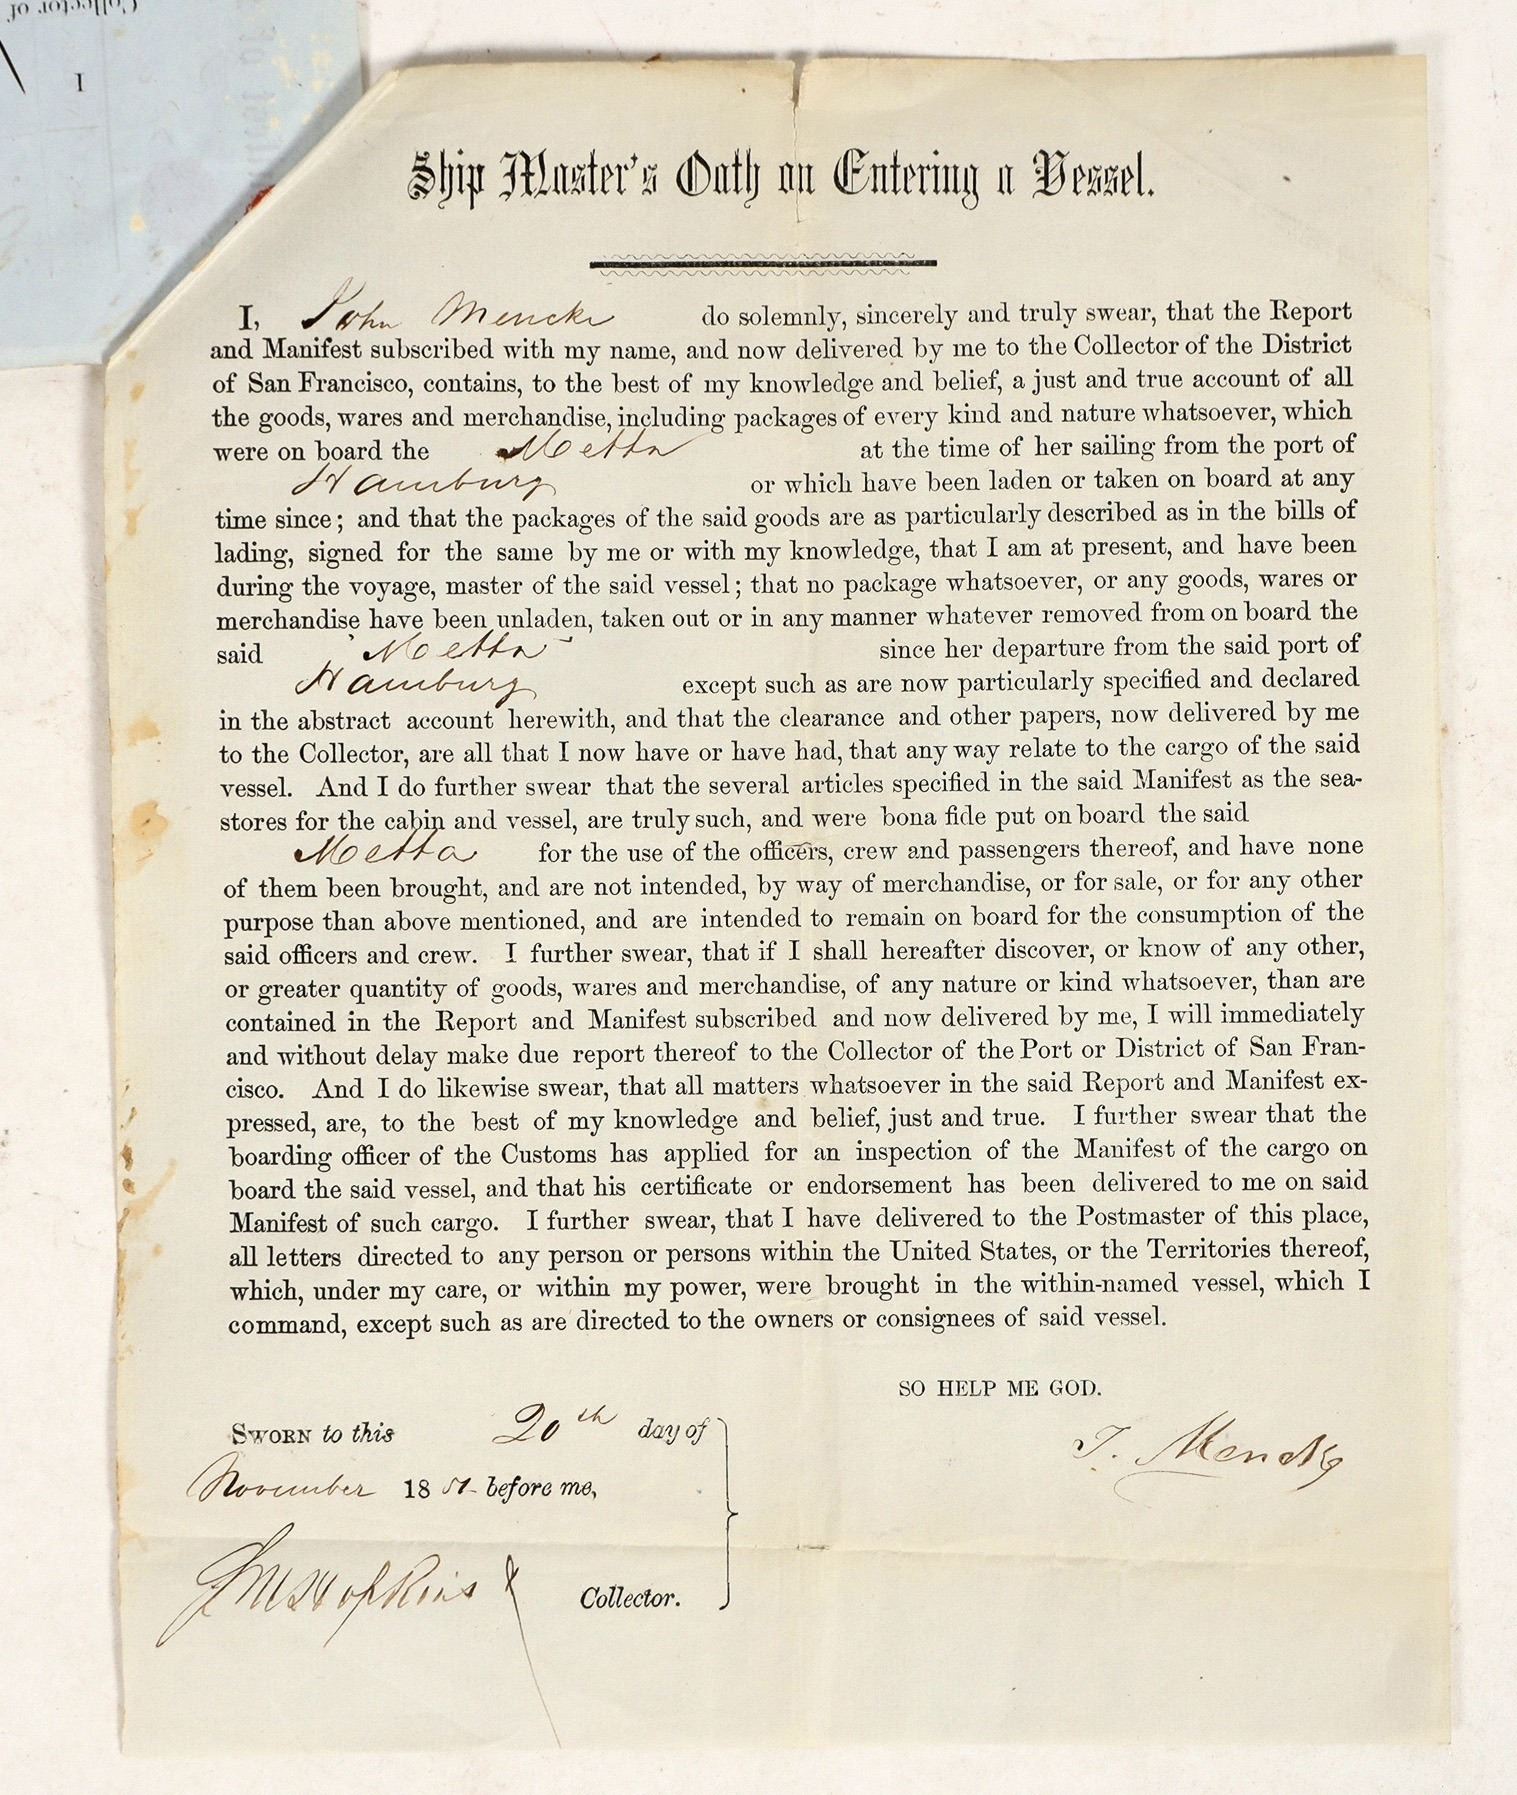 Collector of
I
Ship Master's Oath on Entering a Vessel.
I, John Mencke do solemnly, sincerely and truly swear, that the Report
and Manifest subscribed with my name, and now delivered by me to the Collector of the District
of San Francisco, contains, to the best of my knowledge and belief, a just and true account of all
the goods, wares and merchandise, including packages of every kind and nature whatsoever, which
were on board the Metta at the time of her sailing from the port of
Hamburg or which have been laden or taken on board at any
time since; and that the packages of the said goods are as particularly described as in the bills of
lading, signed for the same by me or with my knowledge, that I am at present, and have been
during the voyage, master of the said vessel; that no package whatsoever, or any goods, wares or
merchandise have been unladen, taken out or in any manner whatever removed from on board the
said Metta since her departure from the said port of
Hamburg except such as are now particularly specified and declared
in the abstract account herewith, and that the clearance and other papers, now delivered by me
to the Collector, are all that I now have or have had, that any way relate to the cargo of the said
vessel. And I do further swear that the several articles specified in the said Manifest as the sea-
stores for the cabin and vessel, are truly such, and were bona fide put on board the said
Metta for the use of the officers, crew and passengers thereof, and have none
of them been brought, and are not intended, by way of merchandise, or for sale, or for any other
purpose than above mentioned, and are intended to remain on board for the consumption of the
said officers and crew. I further swear, that if I shall hereafter discover, or know of any other,
or greater quantity of goods, wares and merchandise, of any nature or kind whatsoever, than are
contained in the Report and Manifest subscribed and now delivered by me, I will immediately
and without delay make due report thereof to the Collector of the Port or District of San Fran-
cisco. And I do likewise swear, that all matters whatsoever in the said Report and Manifest ex-
pressed, are, to the best of my knowledge and belief, just and true. I further swear that the
boarding officer of the Customs has applied for an inspection of the Manifest of the cargo on
board the said vessel, and that his certificate or endorsement has been delivered to me on said
Manifest of such cargo. I further swear, that I have delivered to the Postmaster of this place,
all letters directed to any person or persons within the United States, or the Territories thereof,
which, under my care, or within my power, were brought in the within-named vessel, which I
command, except such as are directed to the owners or consignees of said vessel.
SO HELP ME GOD.
Sworn to this 20th day of
J. Mencke
November 1851 before me,
Hopkins Collector.